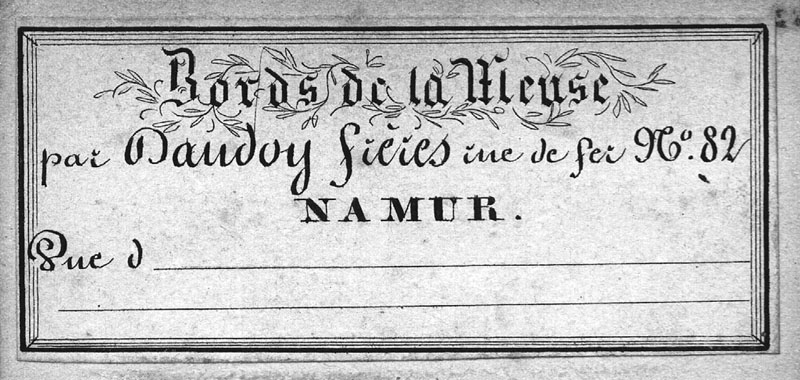 Bords de la Meuse
par Dandoy frères rue de fer Nº. 82
NAMUR.
Vue d